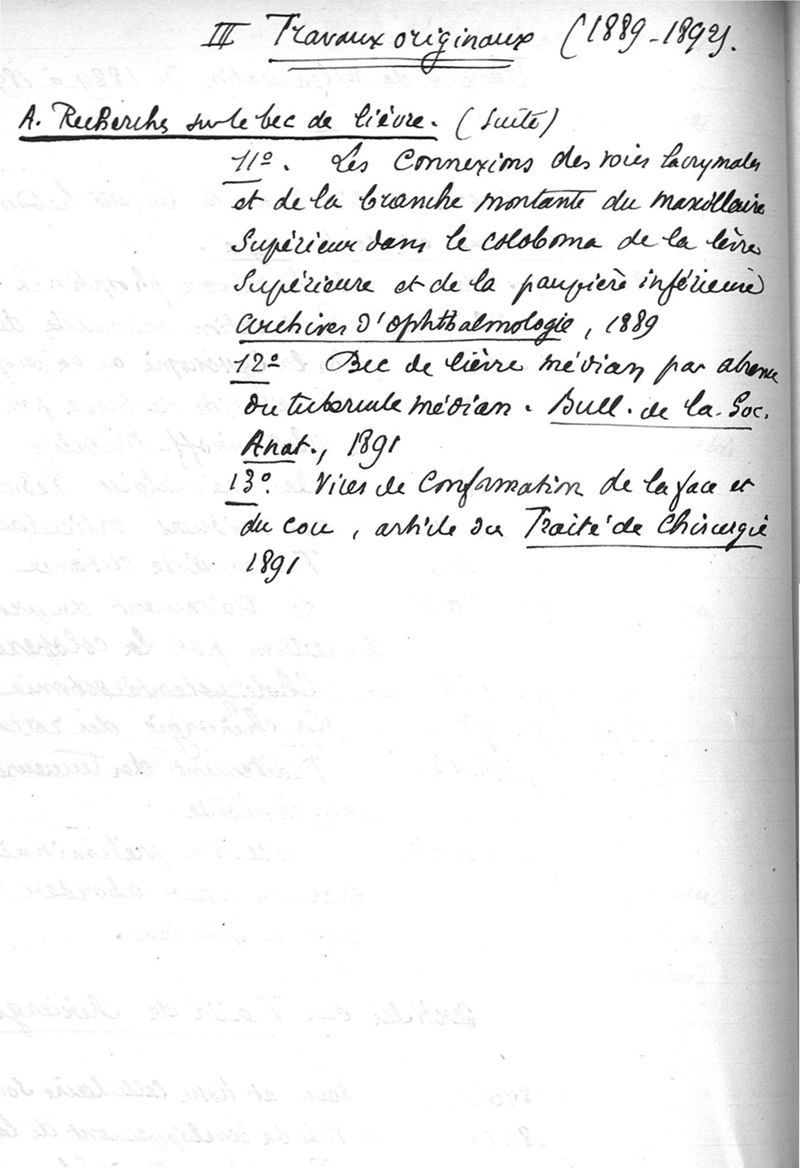 III Travaux originaux (1889-1892).
A. Recherches sur le bec de lièvre. (Suite)
11º. Les Connexions des voies lacrymales
et de la branche montante du maxillaire
Supérieur dans le coloboma de la lèvre
Supérieure et de la paupière inférieure
Archives d'Ophthalmologie, 1889
12º Bec de lièvre médian par absence
du tubercule médian. Bull. de la Soc.
Anat., 1891
13º. Vices de Conformation de la face et
du cou, article du Traité de Chirurgie
1891